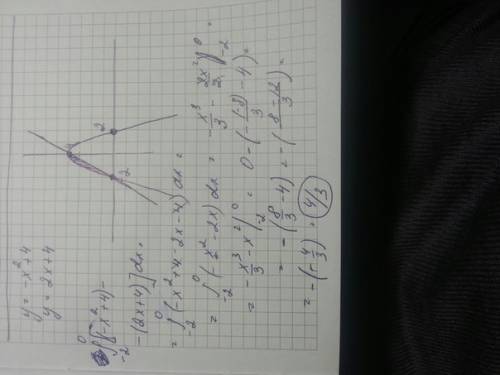 y = -x² + 4
y = 2x + 4
2
-2
∫₋₂⁰ [(-x² + 4) -
- (2x + 4)] dx =
= ∫₋₂⁰ (-x² + 4 - 2x - 4) dx =
= ∫₋₂⁰ (-x² - 2x) dx = -x³/3 - 2x²/2 |₋₂⁰ =
= -x³/3 - x² |₋₂⁰ = 0 - (-(-8)/3 - 4) =
= -(8/3 - 4) = -(8 - 12/3) =
= -(-4/3) = 4/3